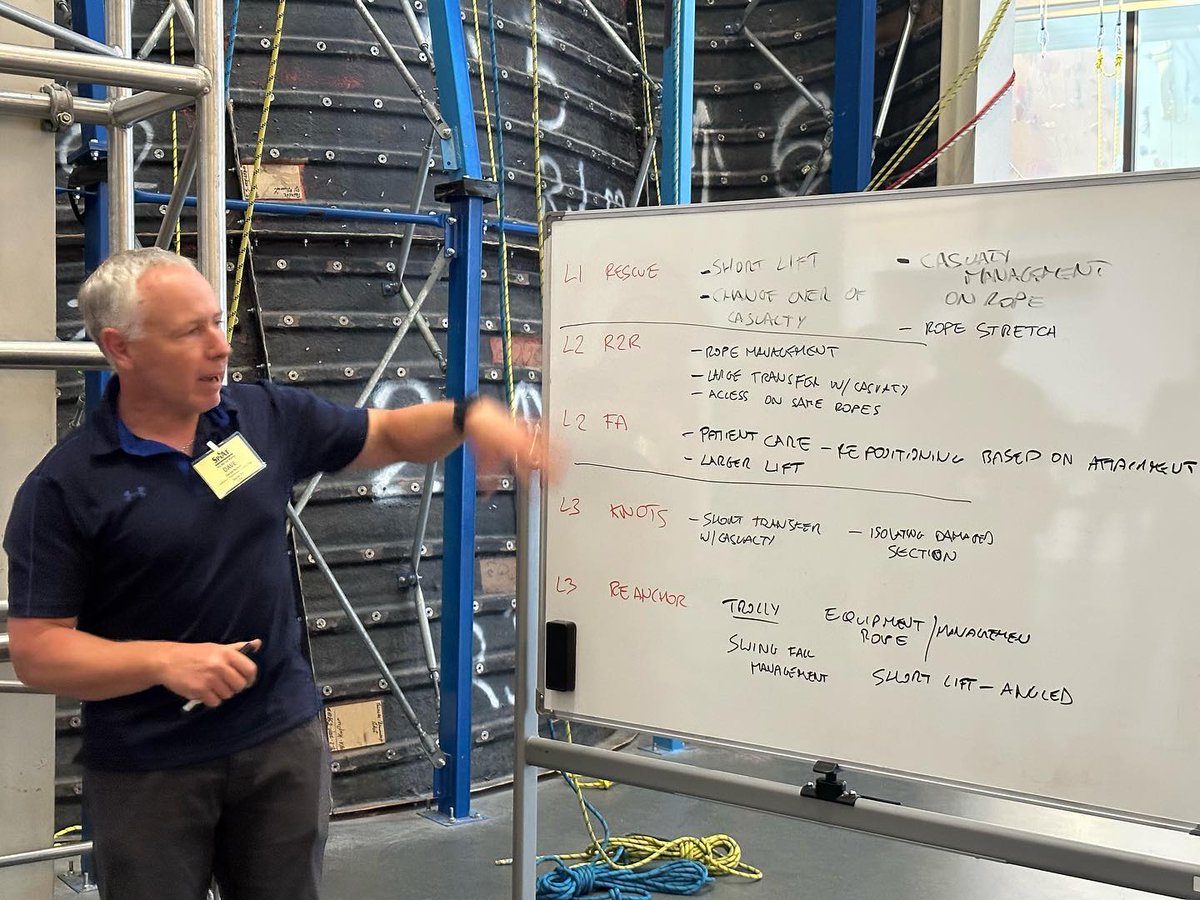 L1 RESCUE
- SHORT LIFT
- CHANGE OVER OF
CASUALTY
- CASUALTY
MANAGEMENT
ON ROPE
- ROPE STRETCH
L2 R2R
- ROPE MANAGEMENT
- LARGE TRANSFER W/CASUALTY
- ACCESS ON SAME ROPES
L2 FA
- PATIENT CARE - REPOSITIONING BASED ON ATTACHMENT
- LARGER LIFT
L3 KNOTS
- SHORT TRANSFER
W/CASUALTY
- ISOLATING DAMAGED
SECTION
L3 REANCHOR
TROLLY
SWING FALL
MANAGEMENT
EQUIPMENT/
ROPE / MANAGEMEN
SHORT LIFT - ANGLED
SPRAT
DAVE